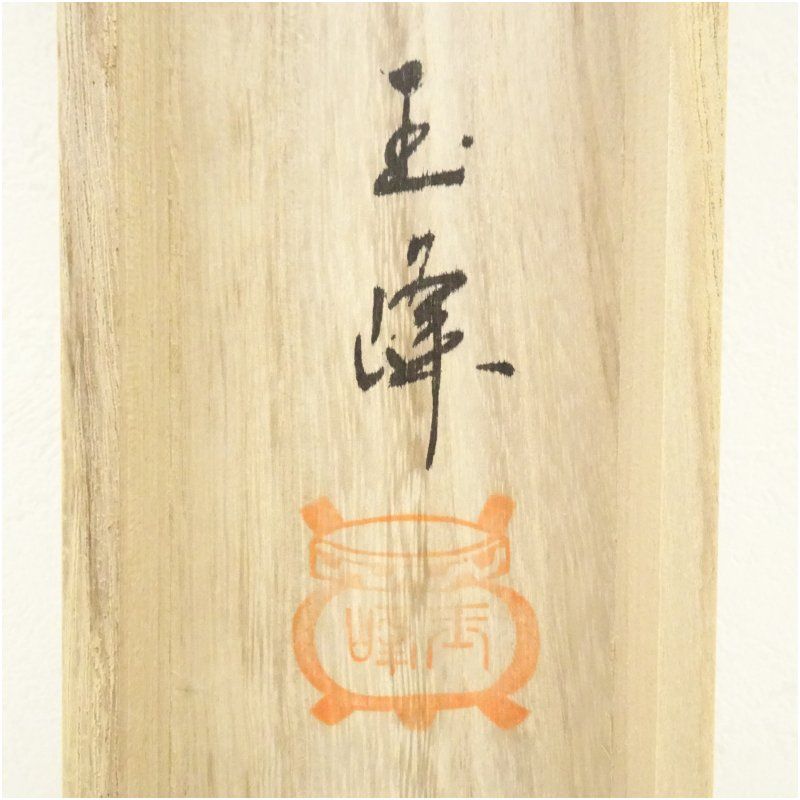 玉峰
玉峰